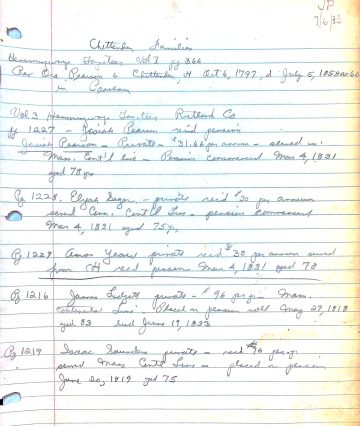 JP
7/6/83
Chittenden Families
Hemmingways Gazeteer Vol I pg 366
Rev Pearson b Chittenden, Vt Oct 6, 1797, d July 5, 1858
in
Vol 3 Hemmingways Gazeteer Rutland Co.
pg 1227 - Josiah Pearson recd pension
Josiah Pearson - Private - $31.66 per annum - served in
Mass. Cont'l line - Pension commenced Mar 4, 1831
aged 78 yrs
Pg 1228. Elijah - private recd $30 per annum
served Conn. Cont'l Line - pension commenced
Mar 4, 1831 aged 75 yrs
Pg 1229 Amos Years private recd $30 per annum served
from VH recd pension Mar 4, 1831 aged 70
Pg 1216 James private - $96 per yr - Mass.
continental Line. Placed on pension roll May 29, 1818
aged 83 died June 19, 1833
Pg 1219 Isaac Saunders private - recd $96 per yr
served Mass Contl Line - placed on pension
June 20, 1819 aged 75